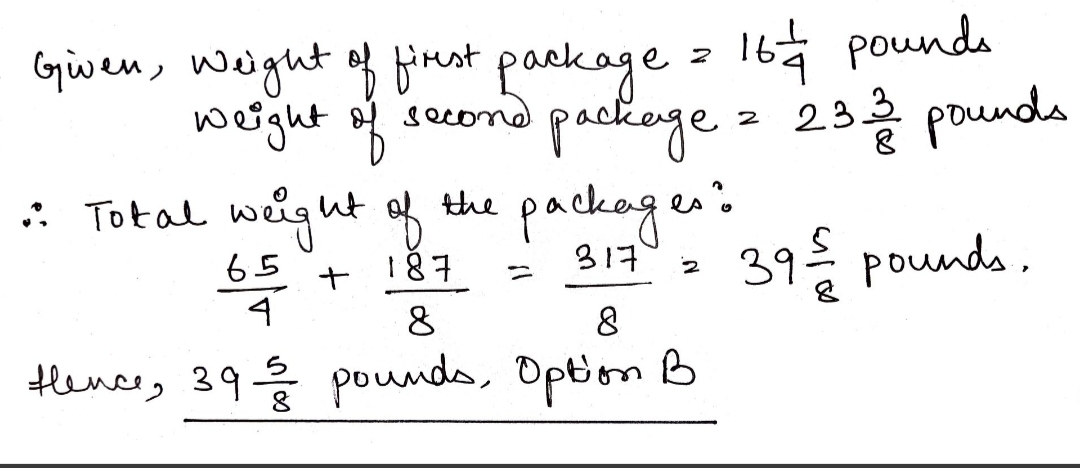 Given, Weight of first package = 16 1/4 pounds
Weight of second package = 23 3/8 pounds
∴ Total weight of the packages:
65/4 + 187/8 = 317/8 = 39 5/8 pounds.
Hence, 39 5/8 pounds, Option B